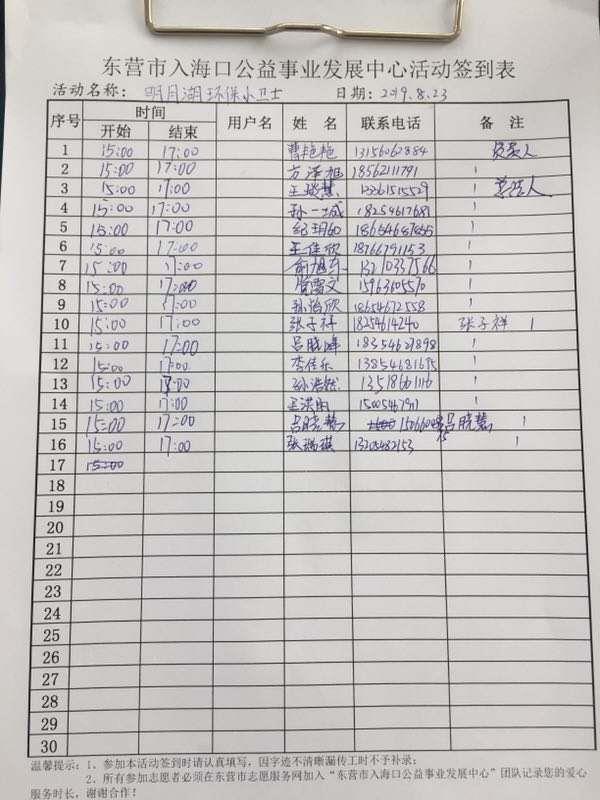 东营市入海口公益事业发展中心活动签到表
活动名称： 明月湖环保小卫士 日期：2019.8.23
序号 时间 用户名 姓 名 联系电话 备 注
开始 结束
1 15:00 17:00 曹艳艳 13156062884 负责人
2 15:00 17:00 18562111791
3 15:00 17:00 王晓慧 13361515529
4 15:00 17:00 孙一诚 18254617681
5 15:00 17:00
6 15:00 17:00 王佳欣 18766791153
7 15:00 17:00 13210337566
8 15:00 17:00 15963605570
9 15:00 17:00 孙怡欣 18654672558
10 15:00 17:00 张子祥 18254614240 张子祥
11 15:00 17:00 吕晓峰 18354621898
12 15:00 17:00 李佳乐 13854681675
13 15:00 孙浩然
14 15:00 17:00 15005467911
15 15:00 17:00 吕晓慧 吕晓慧
16 15:00 17:00 张瑞琪 13205482153
17 15:00
18
19
20
21
22
23
24
25
26
27
28
29
30
温馨提示：1、参加本活动签到时请认真填写，因字迹不清晰漏传工时不予补录；
2、所有参加志愿者必须在东营市志愿服务网加入“东营市入海口公益事业发展中心”团队记录您的爱心
服务时长，谢谢合作！